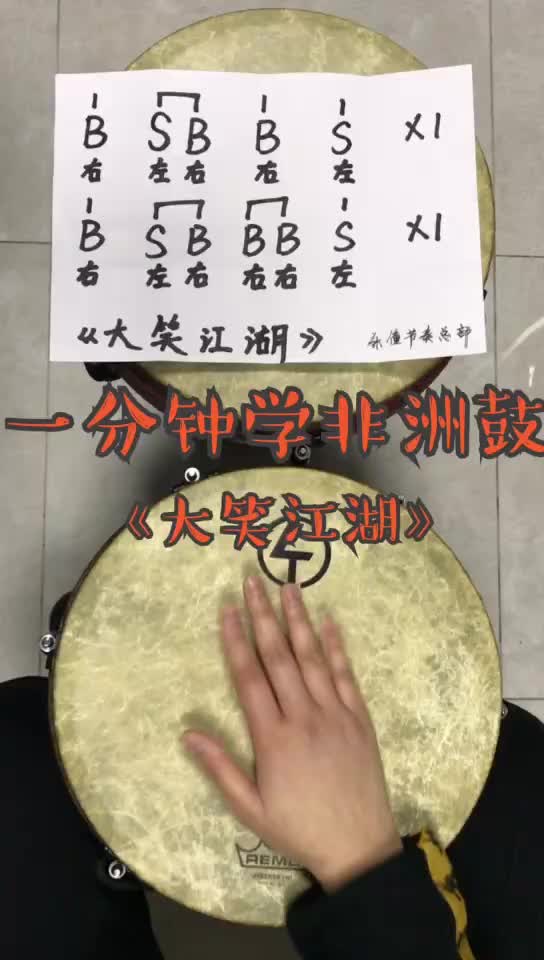 B SB B S X1
右 左右 右 左
B SB BB S X1
右 左右 右右 左
《大笑江湖》 乐僮节奏总部
一分钟学非洲鼓
《大笑江湖》
REMO